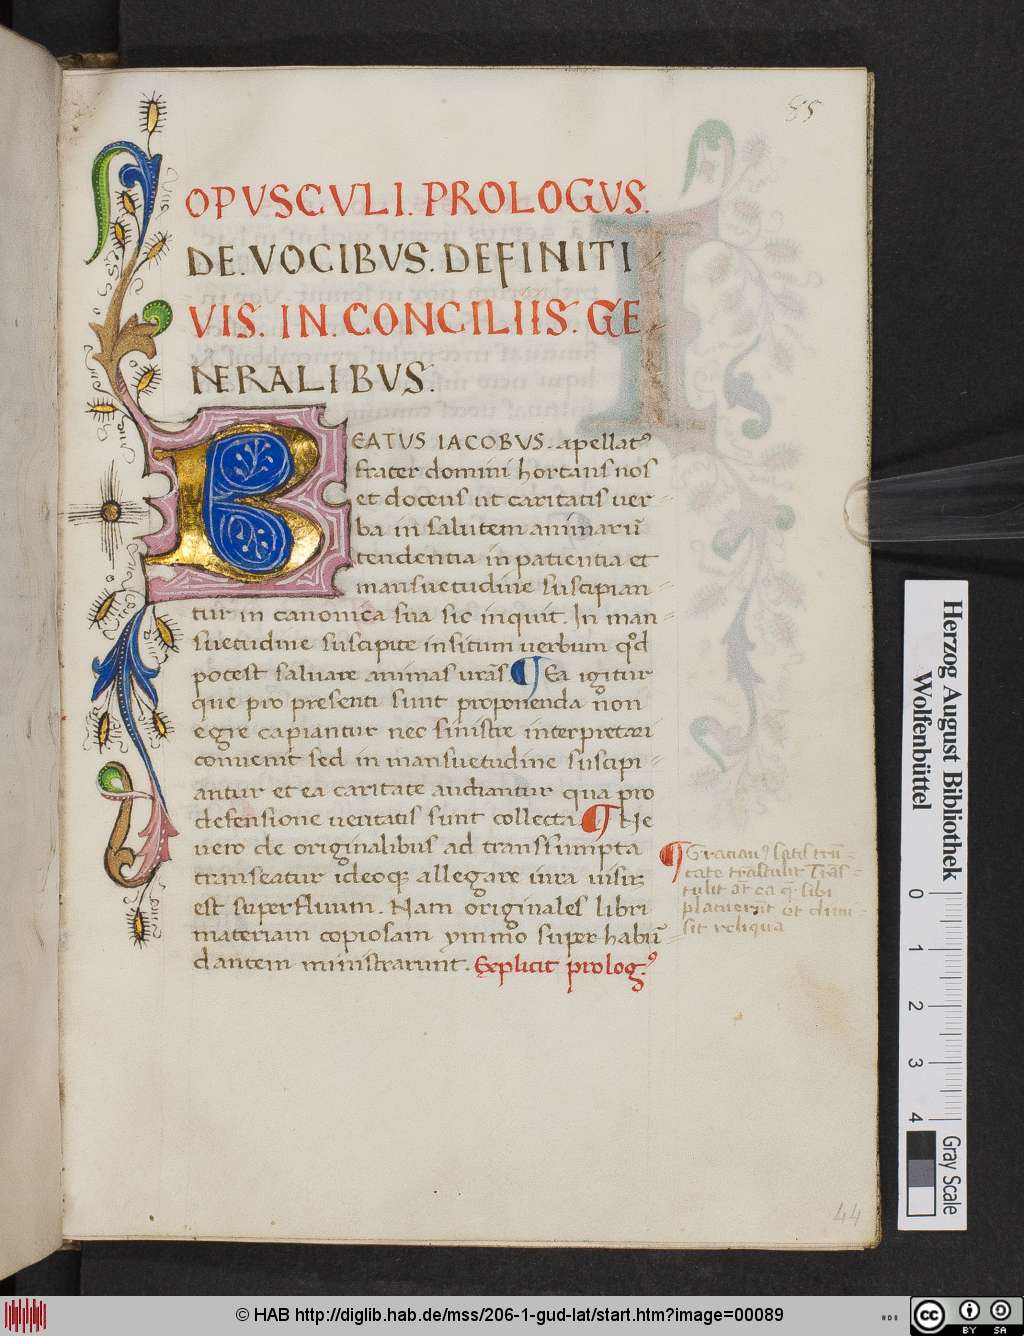 85
OPVSCVLI. PROLOGVS.
DE. VOCIBVS. DEFINITI
VIS. IN. CONCILIIS. GE
NERALIBVS.
BEATUS IACOBUS. apellatꝰ
frater domini hortans nos
et docens ut caritatis uer-
ba in salutem animarū
tendentia in patientia et
mansuetudine suscipian-
tur in canonica sua sic inquit. In man-
suetudine suscipite insitum uerbum qd
potest saluare animas uras ¶ Ea igitur
que pro presenti sunt proponenda non
egre capiantur nec sinistre interpretari
conuenit sed in mansuetudine suscipi-
antur et ea caritate audiantur qua pro
defensione ueritatis sunt collecta ¶ Ne
uero de originalibus ad transsumpta
transeatur ideoqꝫ allegare iura
est superfluum. Nam originales libri
materiam copiosam ymmo super habū-
dantem ministrarunt. Explicit prologꝰ
¶ Gracianꝰ satis trū-
cate trāstulit Trās-
tulit at ea q sibi
placuerūt et dimi-
sit reliqua
44
Herzog August Bibliothek
Wolfenbüttel
0 1 2 3 4
Gray Scale
© HAB http://diglib.hab.de/mss/206-1-gud-lat/start.htm?image=00089
cc BY SA